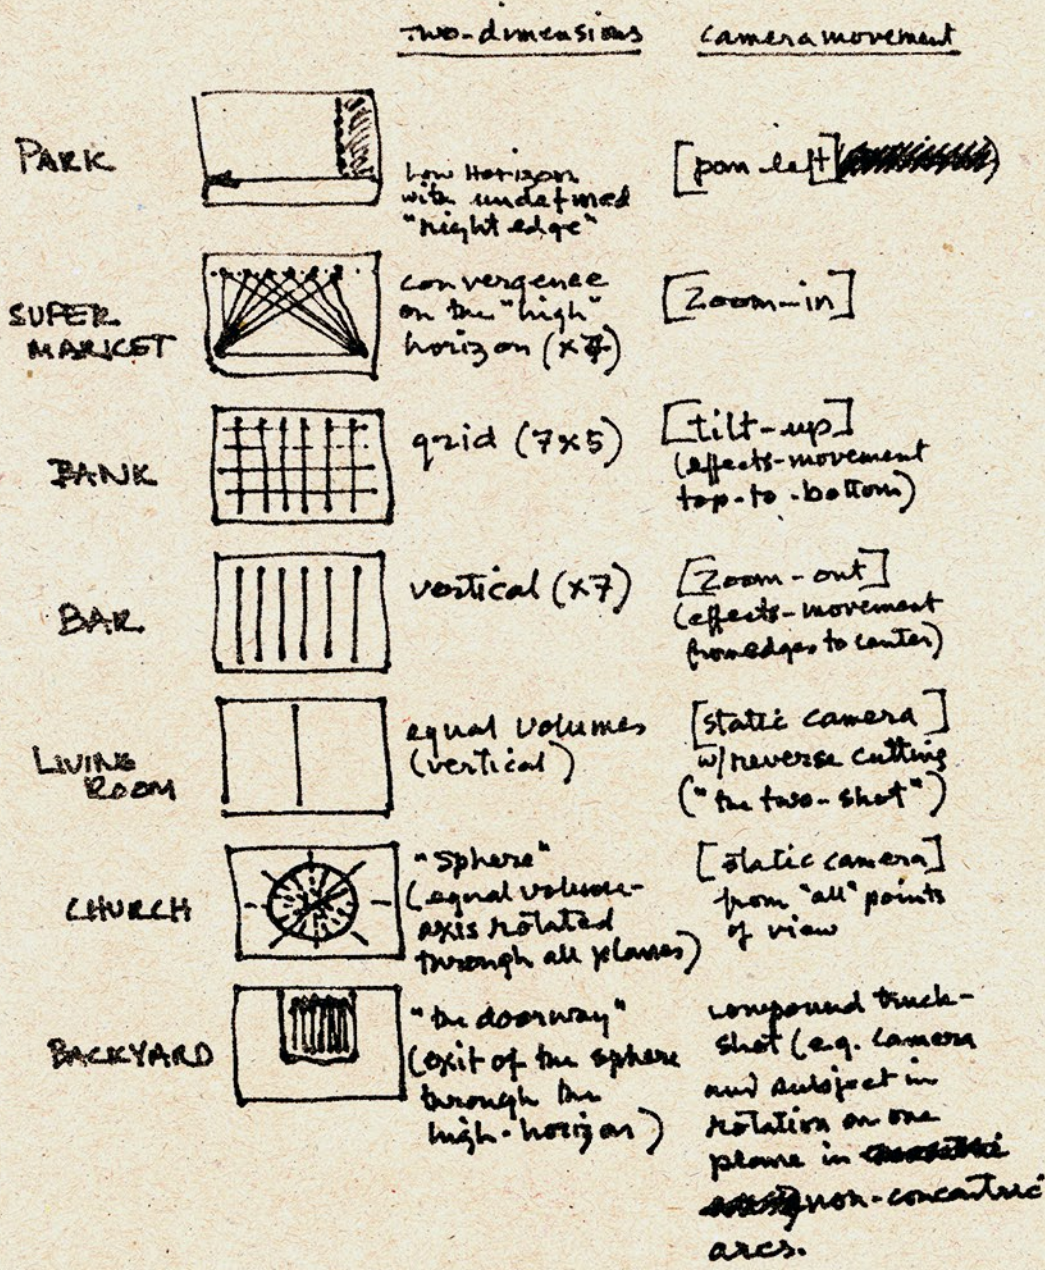 two-dimensions camera movement
PARK
low Horizon
with undefined
"right edge"
[pan left]
SUPER
MARKET
convergence
on the "high"
horizon (x7)
[Zoom-in]
BANK
grid (7x5)
[tilt-up]
(effects-movement
top-to-bottom)
BAR
vertical (x7)
[Zoom-out]
(effects-movement
from edges to center)
LIVING
ROOM
equal volumes
(vertical)
[static camera]
w/reverse cutting
("the two-shot")
CHURCH
"sphere"
(equal volume-
axis rotated
through all planes)
[static camera]
from "all" points
of view
BACKYARD
"the doorway"
(exit of the sphere
through the
high-horizon)
compound truck-
shot (e.g. camera
and subject in
rotation on one
plane in
non-concentric
arcs.